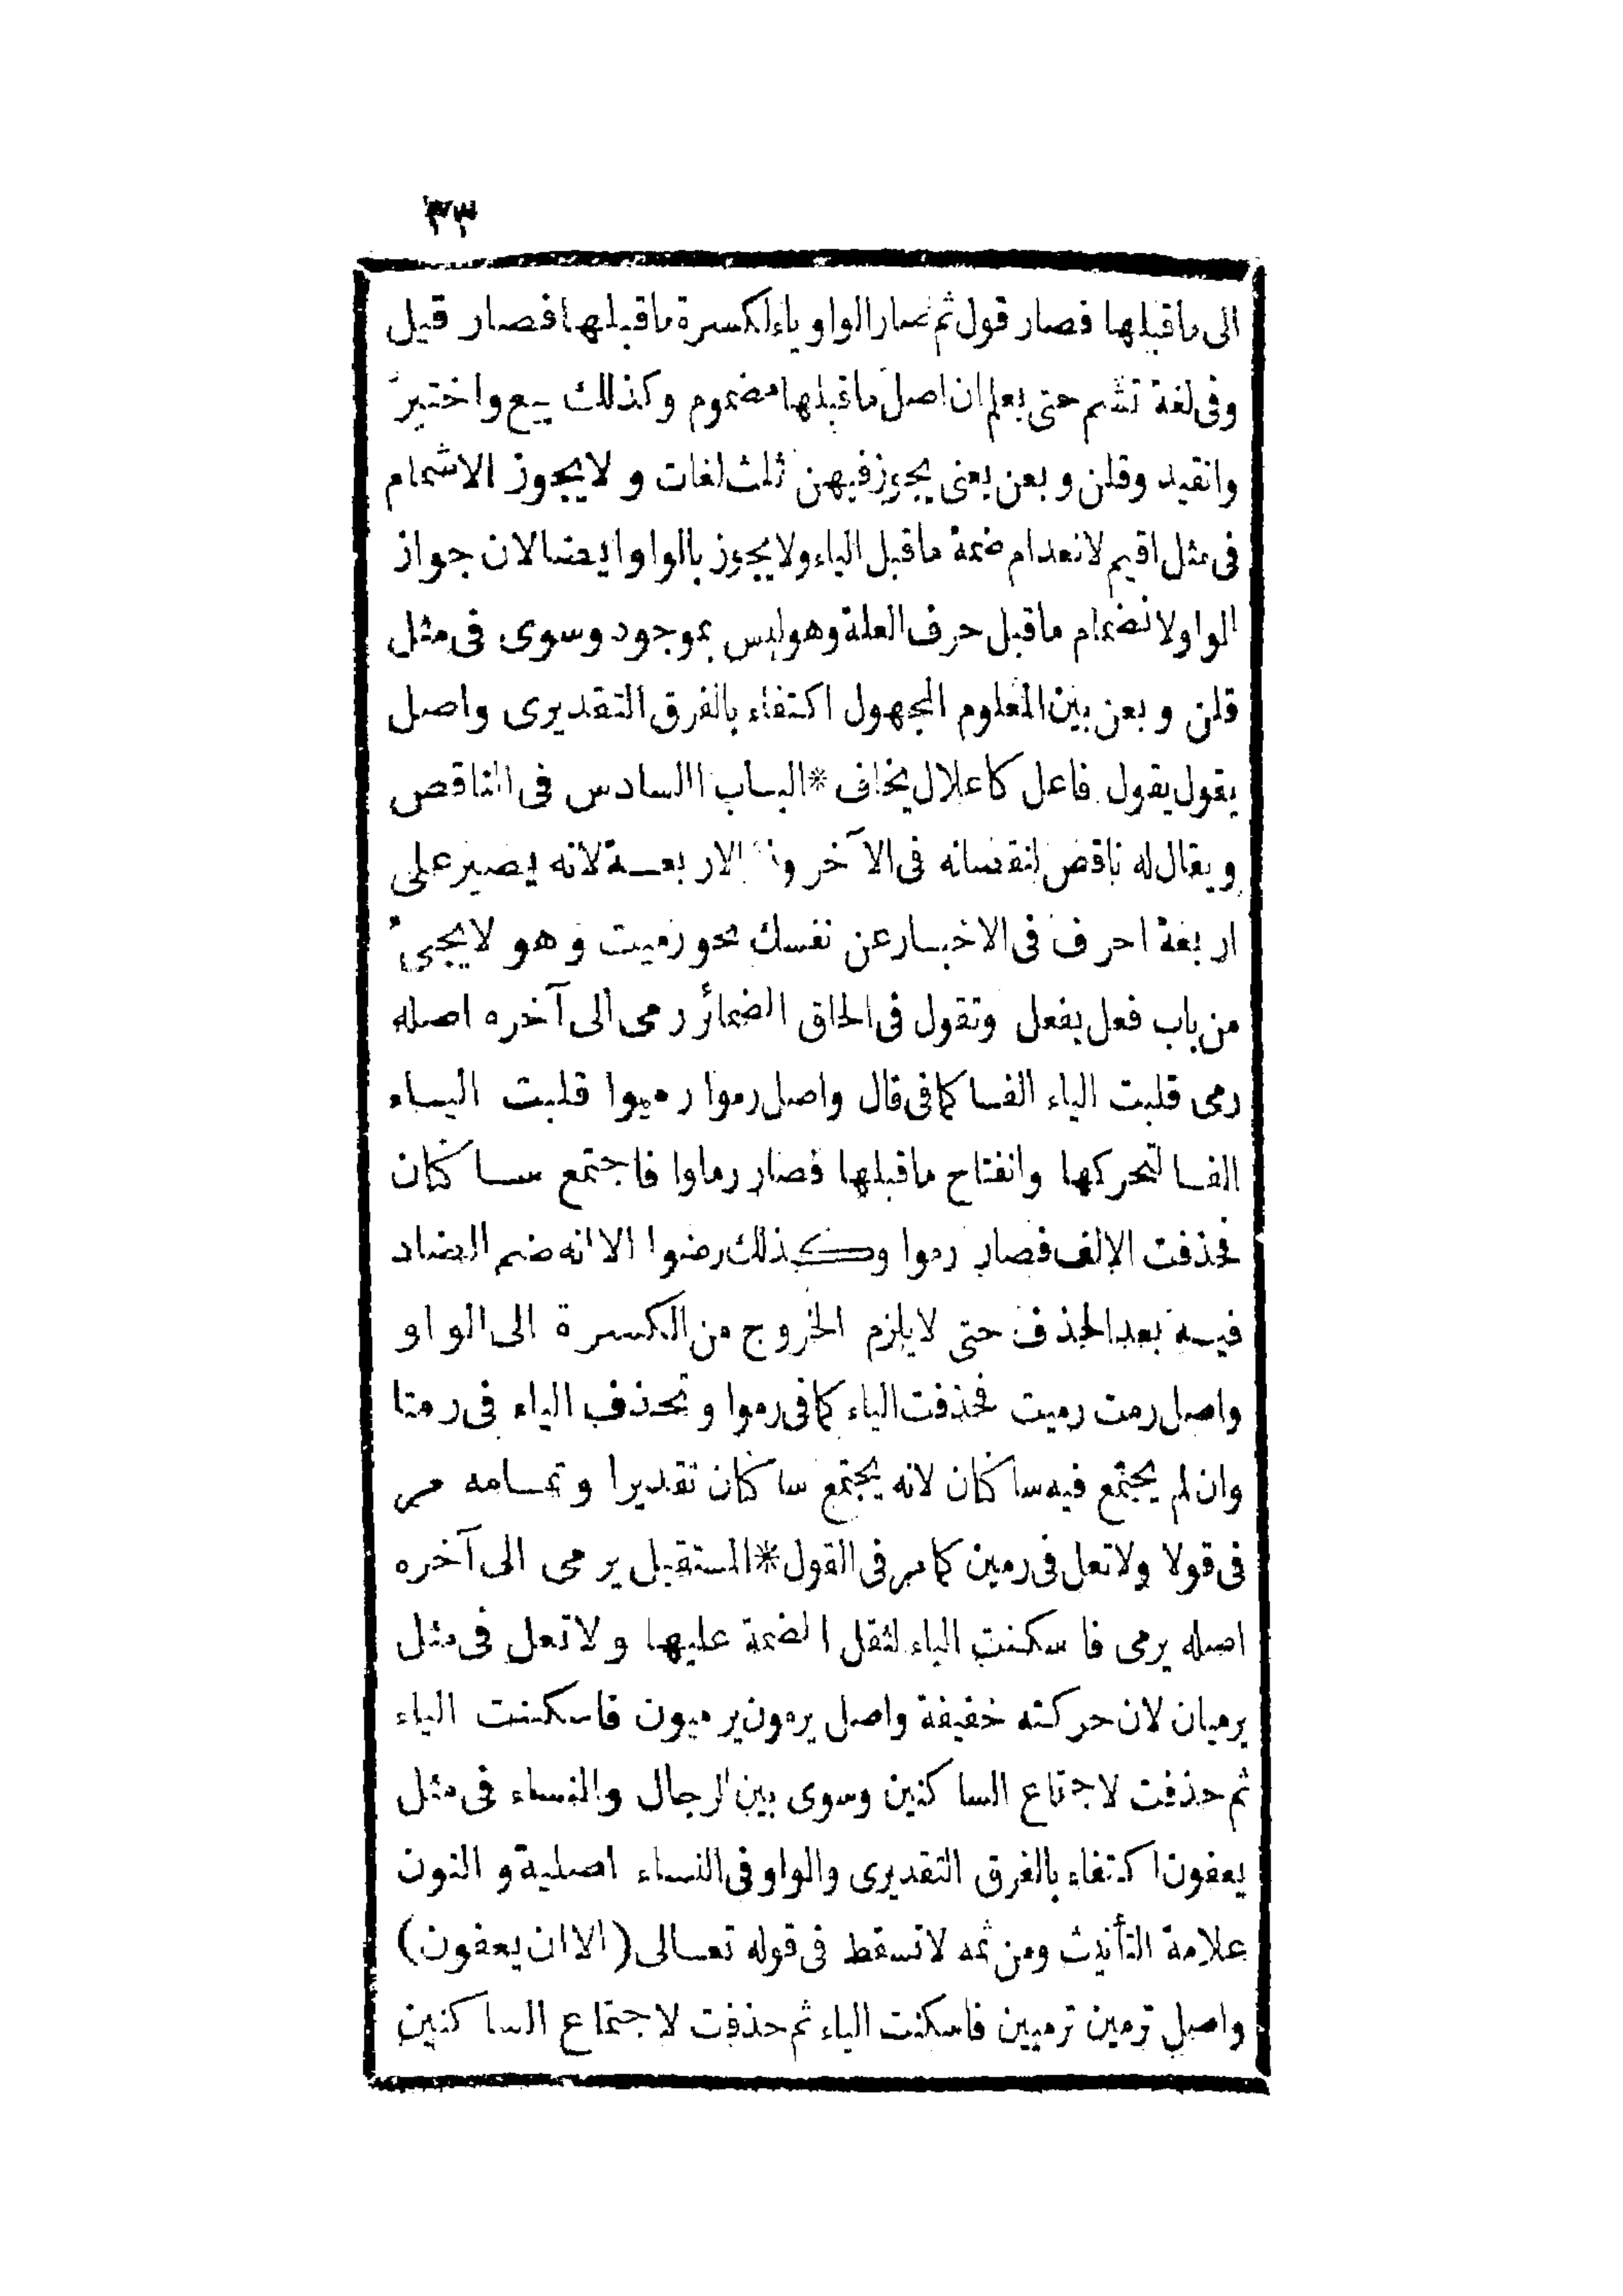 ٣٣
الى ماقبلها فصار قول ثم صار الواو ياء لكسرة ماقبلها فصار قيل
وفى لغة تشم حتى يعلم ان اصل ماقبلها مضموم وكذلك بيع واختير
وانقيد وقلن وبعن يعنى يجوز فيهن ثلث لغات ولا يجوز الاشمام
فى مثل اقيم لانعدام ضمة ماقبل الياء ولا يجوز بالواو ايضا لان جواز
الواو لانضمام ماقبل حرف العلة وهو ليس بموجود وسوى فى مثل
قلن وبعن بين المعلوم المجهول اكتفاء بالفرق التقديرى واصل
يقول يقول فاعل كاعلال يخاف * الباب السادس فى الناقص
ويقال له ناقص لنقصانه فى الآخر الاربعة لانه يصير على
اربعة احرف فى الاخبار عن نفسك نحو رميت وهو لا يجئ
من باب فعل يفعل وتقول فى الحاق الضمائر رمى الى آخره اصله
رمى قلبت الياء الفا كما فى قال واصل رموا رميوا قلبت الياء
الفا لتحركها وانفتاح ماقبلها فصار رماوا فاجتمع ساكنان
فحذفت الالف فصار رموا وكذلك رضوا الا انه ضم الضاد
فيه بعد الحذف حتى لا يلزم الخروج من الكسرة الى الواو
واصل رمت رميت فحذفت الياء كما فى رموا وتحذف الياء فى رمتا
وان لم يجتمع فيه ساكنان لانه يجتمع ساكنان تقديرا وتمامه مر
فى قولا ولا تعل فى رمين كما مر فى القول * المستقبل يرمى الى آخره
اصله يرمى فاسكنت الياء لثقل الضمة عليها ولا تعل فى مثل
يرميان لان حركته خفيفة واصل يرمون يرميون فاسكنت الياء
ثم حذفت لاجتماع الساكنين وسوى بين الرجال والنساء فى مثل
يعفون اكتفاء بالفرق التقديرى والواو فى النساء اصلية و النون
علامة التأنيث ومن ثمه لا تسقط فى قوله تعالى (الا ان يعفون)
واصل ترمين ترميين فاسكنت الياء ثم حذفت لاجتماع الساكنين